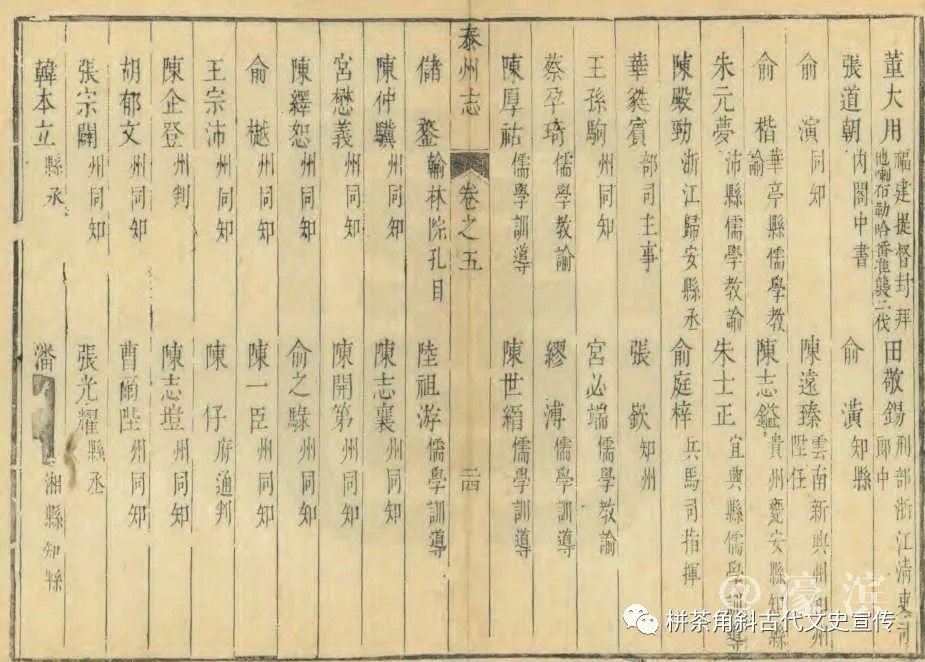 董大用 福建提督封拜他喇布勒哈番准襲二代 田敬錫 刑部浙江清吏司郎中
張道朝 內閣中書 俞潢 知縣
俞演 同知 陳遠臻 雲南新興州知州陞任
俞楷 華亭縣儒學教諭 陳志鎰 貴州甕安縣知縣
朱元夢 沛縣儒學教諭 朱士正 宜興縣儒學訓導
陳殿勷 浙江歸安縣丞 俞庭梓 兵馬司指揮
華袞賓 部司主事 張欽 知州
王孫駒 州同知 宮必端 儒學教諭
蔡孕琦 儒學教諭 繆溥 儒學訓導
陳厚祜 儒學訓導 陳世縉 儒學訓導
泰州志 卷之五 二四
儲鍪 翰林院孔目 陸祖游 儒學訓導
陳仲驥 州同知 陳志襄 州同知
宮懋義 州同知 陳開第 州同知
陳繹恕 州同知 俞之騄 州同知
俞樾 州同知 陳一臣 州同知
王宗沛 州同知 陳仔 府通判
陳企登 州判 陳志塏 州同知
胡郁文 州同知 曹爾陞 州同知
張宗闢 州同知 張光耀 縣丞
韓本立 縣丞 潘 湘縣知縣
@濠滨
栟茶角斜古代文史宣传